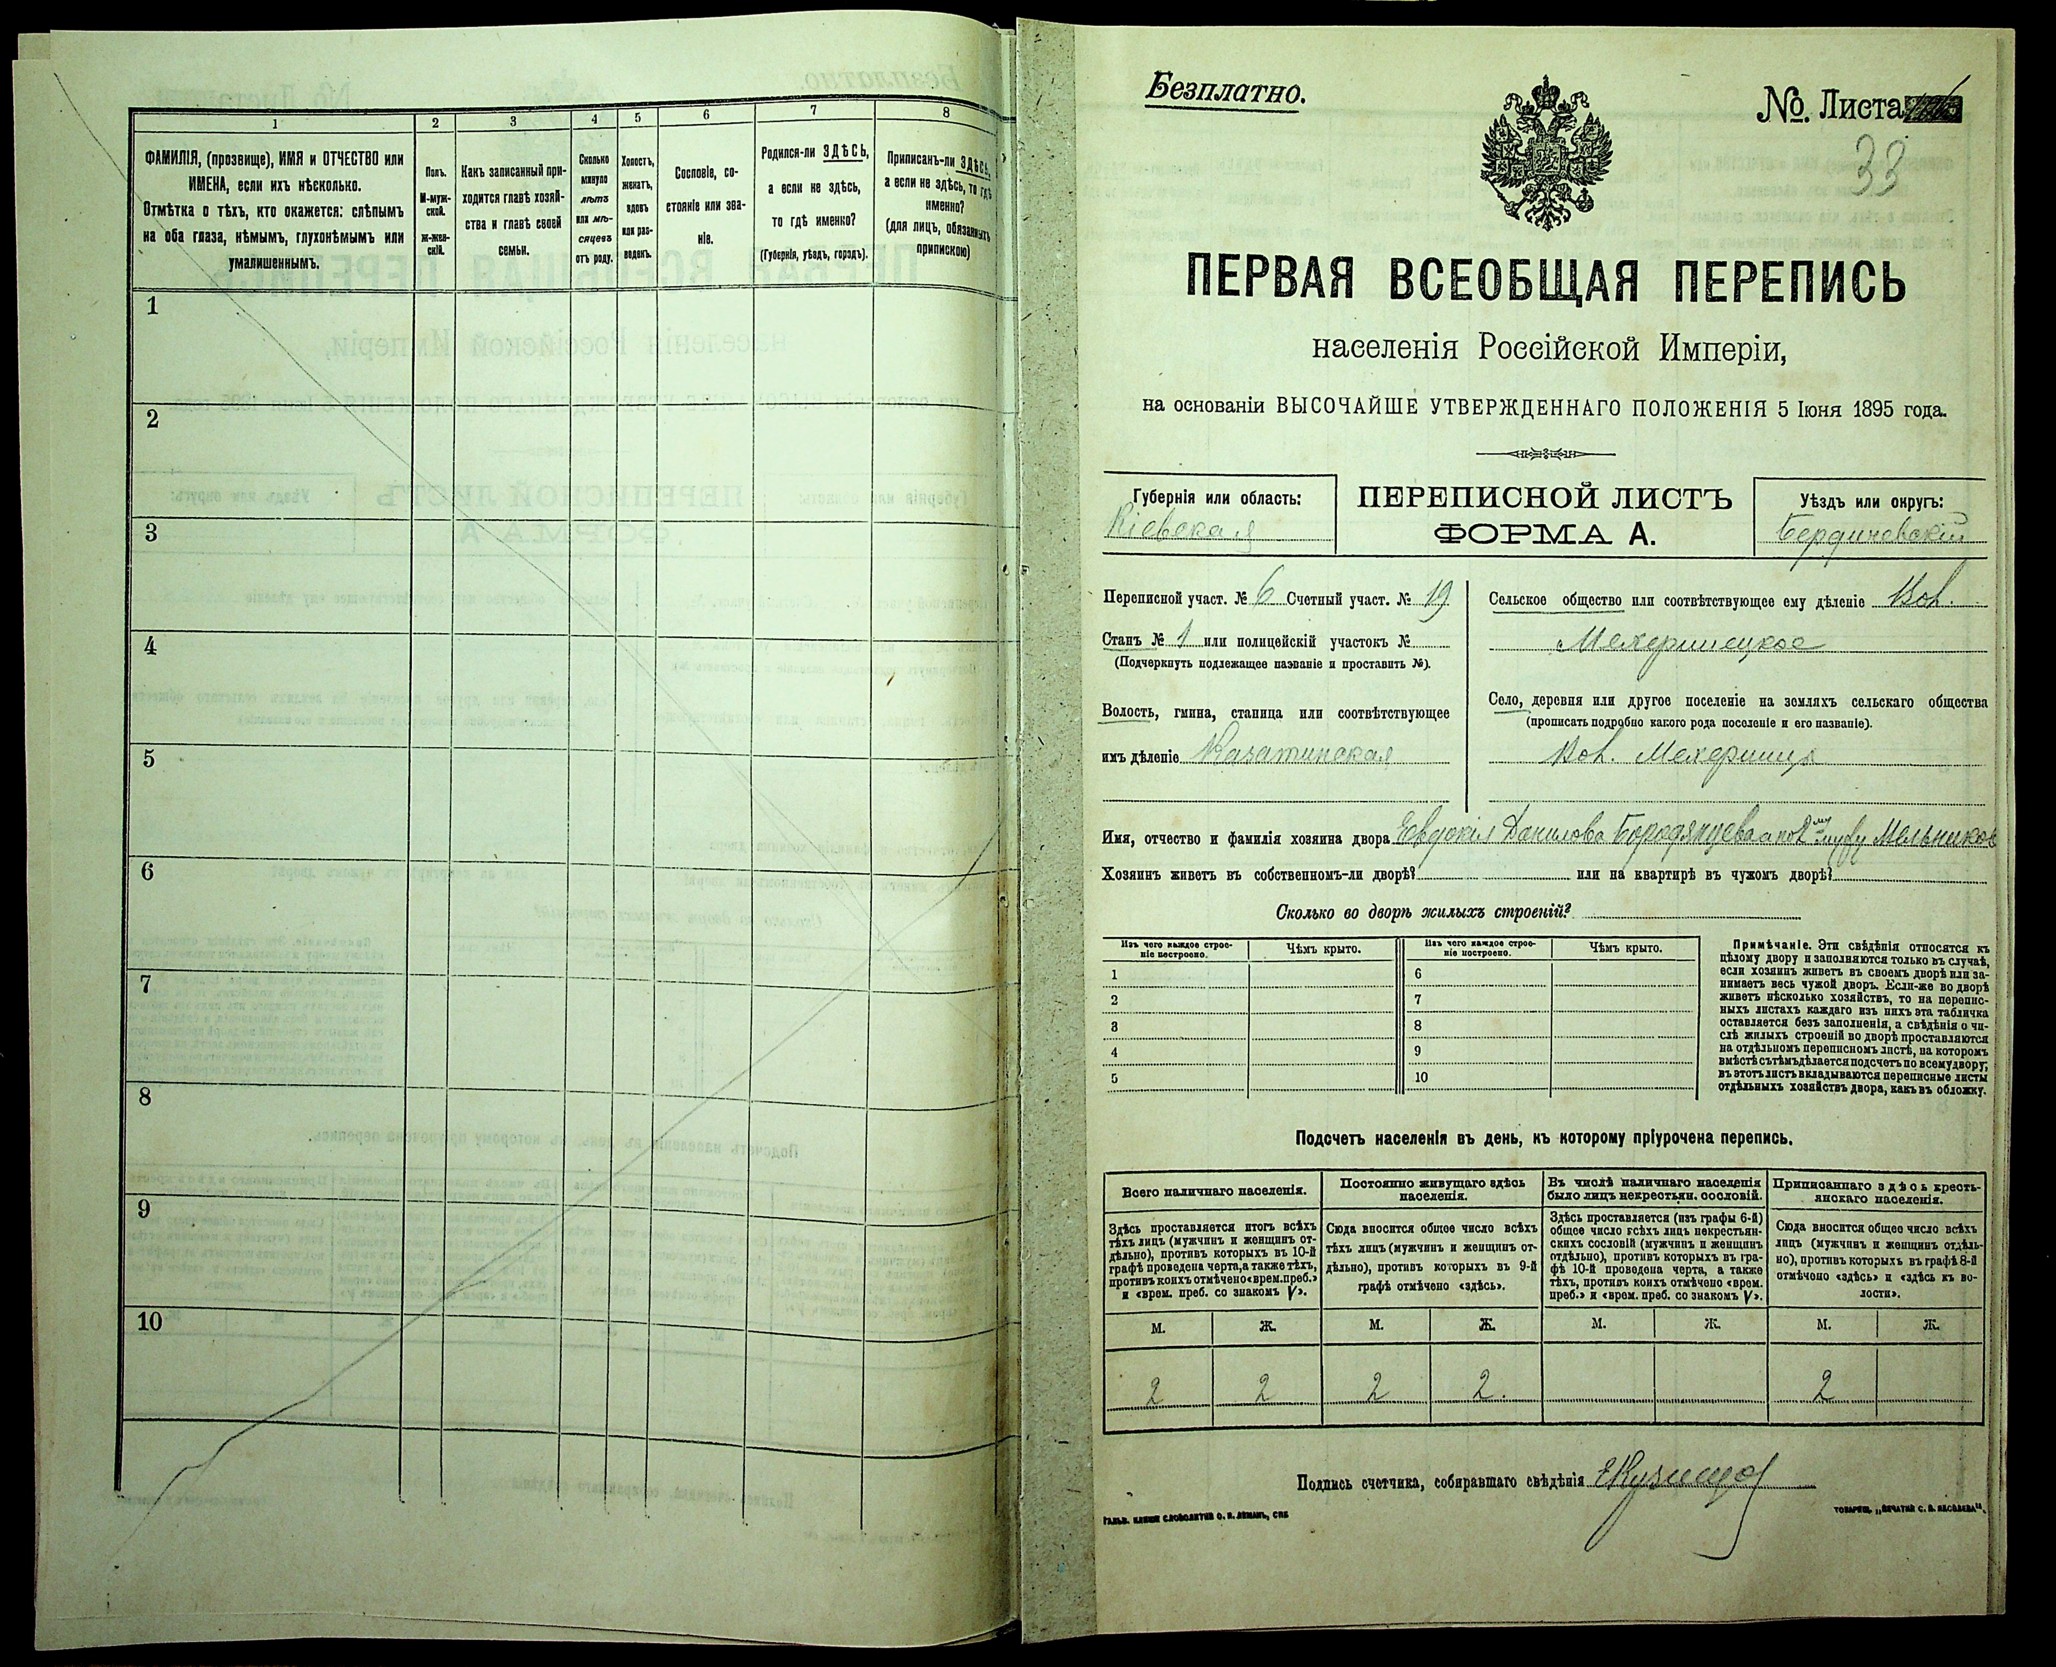 1
2
3
4
5
6
7
8
ФАМИЛІЯ, (прозвище), ИМЯ и ОТЧЕСТВО или
ИМЕНА, если ихъ нѣсколько.
Отмѣтка о тѣхъ, кто окажется: слѣпымъ
на оба глаза, нѣмымъ, глухонѣмымъ или
умалишеннымъ.
Полъ.
М-муж-
ской.
Ж-жен-
скій.
Какъ записанный при-
ходится главѣ хозяй-
ства и главѣ своей
семьи.
Сколько
минуло
лѣтъ
или мѣ-
сяцевъ
отъ роду.
Холостъ,
женатъ,
вдовъ
или раз-
веденъ.
Сословіе, со-
стояніе или зва-
ніе.
Родился-ли ЗДѢСЬ,
а если не здѣсь,
то гдѣ именно?
(Губернія, уѣздъ, городъ).
Приписанъ-ли ЗДѢСЬ,
а если не здѣсь, то гдѣ
именно?
(для лицъ, обязанныхъ
припискою)
1
2
3
4
5
6
7
8
9
10
Безплатно.
№. Листа
33
ПЕРВАЯ ВСЕОБЩАЯ ПЕРЕПИСЬ
населенія Россійской Имперіи,
на основаніи ВЫСОЧАЙШЕ УТВЕРЖДЕННАГО ПОЛОЖЕНІЯ 5 Іюня 1895 года.
Губернія или область:
Кіевская
ПЕРЕПИСНОЙ ЛИСТЪ
ФОРМА А.
Уѣздъ или округъ:
Бердичевскій
Переписной участ. № 6 Счетный участ. № 19
Станъ № 1 или полицейскій участокъ №
(Подчеркнуть подлежащее названіе и проставить №).
Волость, гмина, станица или соотвѣтствующее
имъ дѣленіе Казатинская
Сельское общество или соотвѣтствующее ему дѣленіе
Село, деревня или другое поселеніе на земляхъ сельскаго общества
(прописать подробно какого рода поселеніе и его названіе).
Имя, отчество и фамилія хозяина двора Евдокія Данилова Бородянцева а по 2му мужу Мельников
Хозяинъ живетъ въ собственномъ-ли дворѣ? или на квартирѣ въ чужомъ дворѣ?
Сколько во дворѣ жилыхъ строеній?
Изъ чего каждое строе-
ніе построено.
Чѣмъ крыто.
Изъ чего каждое строе-
ніе построено.
Чѣмъ крыто.
1 6
2 7
3 8
4 9
5 10
Примѣчаніе. Эти свѣдѣнія относятся къ
цѣлому двору и заполняются только въ случаѣ,
если хозяинъ живетъ въ своемъ дворѣ или за-
нимаетъ весь чужой дворъ. Если-же во дворѣ
живетъ нѣсколько хозяйствъ, то на перепис-
ныхъ листахъ каждаго изъ нихъ эта табличка
оставляется безъ заполненія, а свѣдѣнія о чи-
слѣ жилыхъ строеній во дворѣ проставляются
на отдѣльномъ переписномъ листѣ, на которомъ
вмѣстѣ съ тѣмъ дѣлается подсчетъ по всему двору;
въ этотъ листъ вкладываются переписные листы
отдѣльныхъ хозяйствъ двора, какъ въ обложку.
Подсчетъ населенія въ день, къ которому пріурочена перепись.
Всего наличнаго населенія.
Здѣсь проставляется итогъ всѣхъ
тѣхъ лицъ (мужчинъ и женщинъ от-
дѣльно), противъ которыхъ въ 10-й
графѣ проведена черта, а также тѣхъ,
противъ коихъ отмѣчено «врем. преб.»
и «врем. преб. со знакомъ V».
Постоянно живущаго здѣсь
населенія.
Сюда вносится общее число всѣхъ
тѣхъ лицъ (мужчинъ и женщинъ от-
дѣльно), противъ которыхъ въ 9-й
графѣ отмѣчено «здѣсь».
Въ числѣ наличнаго населенія
было лицъ некрестьян. сословій.
Здѣсь проставляется (изъ графы 6-й)
общее число всѣхъ лицъ некрестьян-
скихъ сословій (мужчинъ и женщинъ
отдѣльно), противъ которыхъ въ гра-
фѣ 10-й проведена черта, а также
тѣхъ, противъ коихъ отмѣчено «врем.
преб.» и «врем. преб. со знакомъ V».
Приписаннаго здѣсь кресть-
янскаго населенія.
Сюда вносится общее число всѣхъ
лицъ (мужчинъ и женщинъ отдѣль-
но), противъ которыхъ въ графѣ 8-й
отмѣчено «здѣсь» и «здѣсь къ во-
лости».
М. Ж. М. Ж. М. Ж. М. Ж.
2 2 2 2. 2
Подпись счетчика, собиравшаго свѣдѣнія